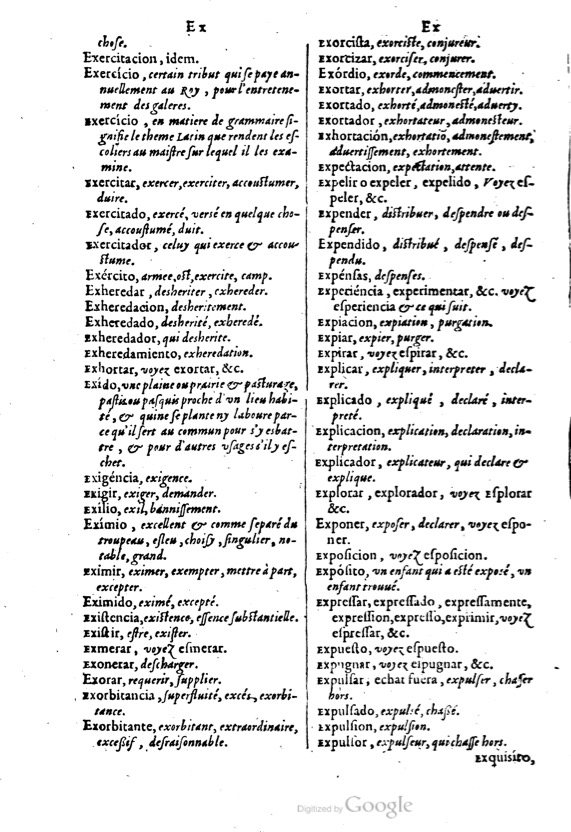 Ex
choſe.
Exercitacion, idem.
Exercício, certain tribut qui ſe paye an-
nuellement au Roy, pour l'entretene-
ment des galeres.
Exercício, en matiere de grammaire ſi-
gnifie le theme Latin que rendent les eſ-
coliers au maiſtre ſur lequel il les exa-
mine.
Exercitar, exercer, exerciter, accouſtumer,
duire.
Exercitado, exercé, versé en quelque cho-
ſe, accouſtumé, duit.
Exercitador, celuy qui exerce & accou-
ſtume.
Exército, armee, oſt, exercite, camp.
Exheredar, desheriter, exhereder.
Exheredacion, desheritement.
Exheredado, desherité, exheredé.
Exheredador, qui desherite.
Exheredamiento, exheredation.
Exhortar, voyez exortar, &c.
Exido, vne plaine ou prairie & paſturage,
paſtis ou paſquis proche d'vn lieu habi-
té, & qui ne ſe plante ny laboure par-
ce qu'il ſert au commun pour s'y esbat-
tre, & pour d'autres vſages s'il y eſ-
chet.
Exigéncia, exigence.
Exigir, exiger, demander.
Exílio, exil, banniſſement.
Exímio, excellent & comme ſeparé du
troupeau, eſleu, choiſy, ſingulier, no-
table, grand.
Eximir, eximer, exempter, mettre à part,
excepter.
Eximido, eximé, excepté.
Existencia, existence, eſſence ſubſtantielle.
Existir, eſtre, exiſter.
Exmerar, voyez eſmerar.
Exonerar, deſcharger.
Exorar, requerir, ſupplier.
Exorbitancia, ſuperfluité, excés, exorbi-
tance.
Exorbitante, exorbitant, extraordinaire,
exceßif, deſraiſonnable.
Ex
Exorcista, exorciſte, conjureur.
Exorcizar, exorciſer, conjurer.
Exórdio, exorde, commencement.
Exortar, exhorter, admoneſter, aduertir.
Exortado, exhorté, admoneſté, aduerty.
Exortador, exhortateur, admoneſteur.
Exhortación, exhortatiō, admoneſtement,
aduertiſſement, exhortement.
Expectacion, expectation, attente.
Expelir o expeler, expelido, Voyez eſ-
peler, &c.
Expender, diſtribuer, deſpendre ou deſ-
penſer.
Expendido, diſtribué, deſpenſé, deſ-
pendu.
Expénſas, deſpenſes.
Experiéncia, experimentar, &c. voyez
eſperiencia & ce qui ſuit.
Expiacion, expiation, purgation.
Expiar, expier, purger.
Expirar, voyez eſpirar, &c.
Explicar, expliquer, interpreter, decla-
rer.
Explicado, expliqué, declaré, inter-
preté.
Explicacion, explication, declaration, in-
terpretation.
Explicador, explicateur, qui declare &
explique.
Explorar, explorador, voyez Eſplorar
&c.
Exponer, expoſer, declarer, voyez eſpo-
ner.
Expoſicion, voyez eſpoſicion.
Expóſito, vn enfant qui a eſté expoſé, vn
enfant trouué.
Expreſſar, expreſſado, expreſſamente,
expreſſion, expreſſo, exprimir, voyez
eſpreſſar, &c.
Expueſto, voyez eſpueſto.
Expugnar, voyez eſpugnar, &c.
Expulſar, echar fuera, expulſer, chaſſer
hors.
Expulſado, expulſé, chaſſé.
Expulſion, expulſion.
Expulſor, expulſeur, qui chaſſe hors.
Exquiſito,
Digitized by Google